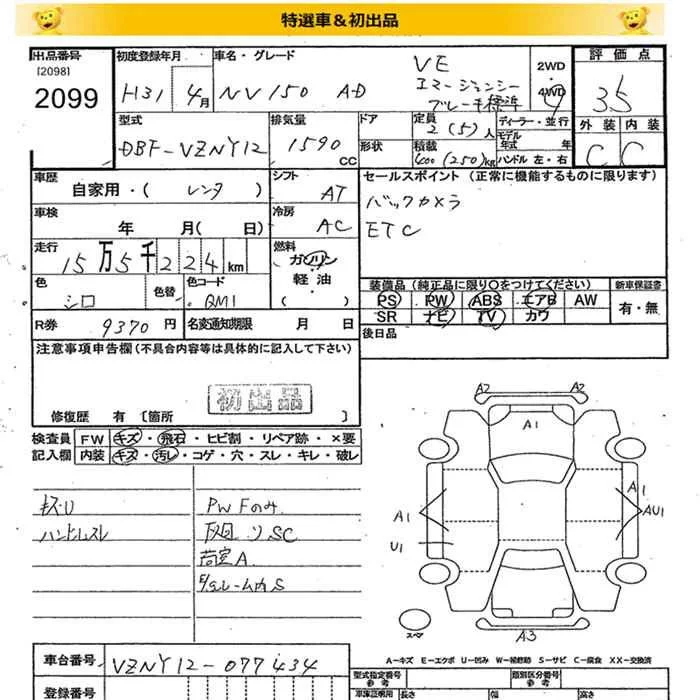 特選車＆初出品
出品番号
[2098]
2099
初度登録年月
H31 4月
車名・グレード
NV150 AD
VE
エマージェンシー
ブレーキ標準
2WD
・
4WD
4
評価点
3.5
外装 内装
C C
型式
DBF-VZNY12
排気量
1590
cc
ドア
形状
定員
2 (5) 人
積載
400 (250) kg
ディーラー・並行
モデル
年式 年
ハンドル 左・右
車歴
自家用・( レンタ )
シフト
AT
セールスポイント (正常に機能するものに限ります)
バックカメラ
ETC
車検
年 月( 日)
冷房
AC
走行
15万5千224km
燃料
ガソリン
・
軽油
( )
色
シロ
色替
色コード
QM1
装備品 (純正品に限り○をつけてください)
PS PW ABS エアB AW
SR ナビ TV カワ
新車保証書
有・無
R券 9370円
名変通知期限 月 日
後日品
注意事項申告欄 (不具合内容等は具体的に記入して下さい)
初出品
修復歴 有 [箇所 ]
検査員
記入欄
FW キズ・飛石・ヒビ割・リペア跡・×要
内装 キズ・汚レ・コゲ・穴・スレ・キレ・破レ
キズ・U
ハンドルスレ
PWFのみ
下回りSC
荷室A
A2 A2
A1
A1
U1
A1
AU1
スペア
A3
A−キズ E−エクボ U−凹み W−補修跡 S−サビ C−腐食 XX−交換済
車台番号
VZNY12-077434
登録番号
型式指定番号
参考
類別区分番号
参考
車庫証明用
長さ 幅 高さ